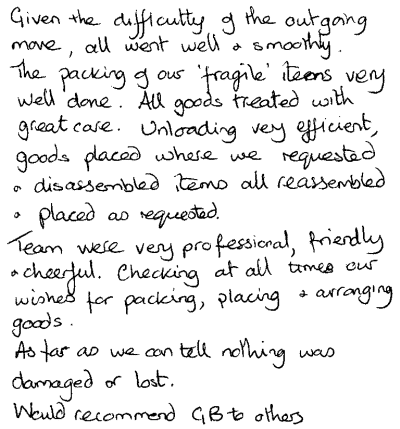 Given the difficulty of the outgoing
move, all went well & smoothly.
The packing of our 'fragile' items very
well done. All goods treated with
great care. Unloading very efficient,
goods placed where we requested
& disassembled items all reassembled
& placed as requested.
Team were very professional, friendly
& cheerful. Checking at all times our
wishes for packing, placing & arranging
goods.
As far as we can tell nothing was
damaged or lost.
Would recommend GB to others